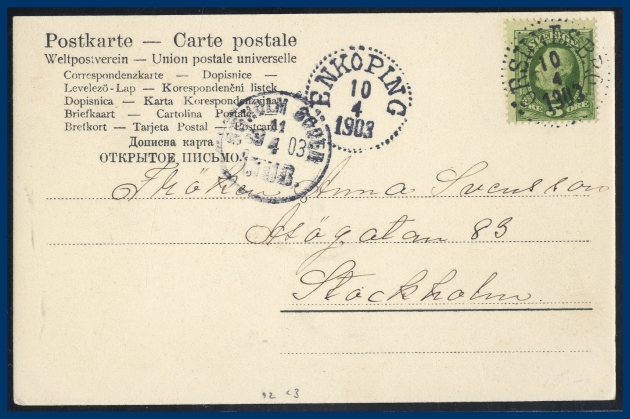 Postkarte — Carte postale
Weltpostverein — Union postale universelle
Correspondenzkarte — Dopisnice —
Levelező-Lap — Korespondenční listek
Dopisnica — Karta Korespondenzyjna
Briefkaart — Cartolina Postale
Brefkort — Tarjeta Postal — Postcard
Дописна карта
ОТКРЫТОЕ ПИСЬМО
ENKÖPING
10
4
1903
11
4 03
SVERIGE
10
4
1903
Fröken Anna Svensson
Åsögatan 83
Stockholm.
92 c3